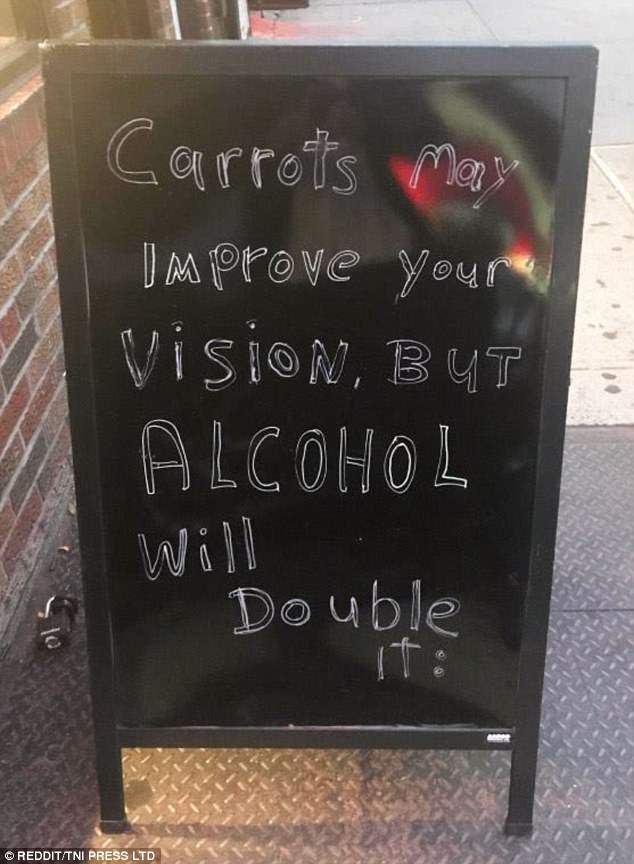 Carrots May
IMProve your
VisioN, BUT
ALCOHOL
Will
Double
IT:
© REDDIT/TNI PRESS LTD